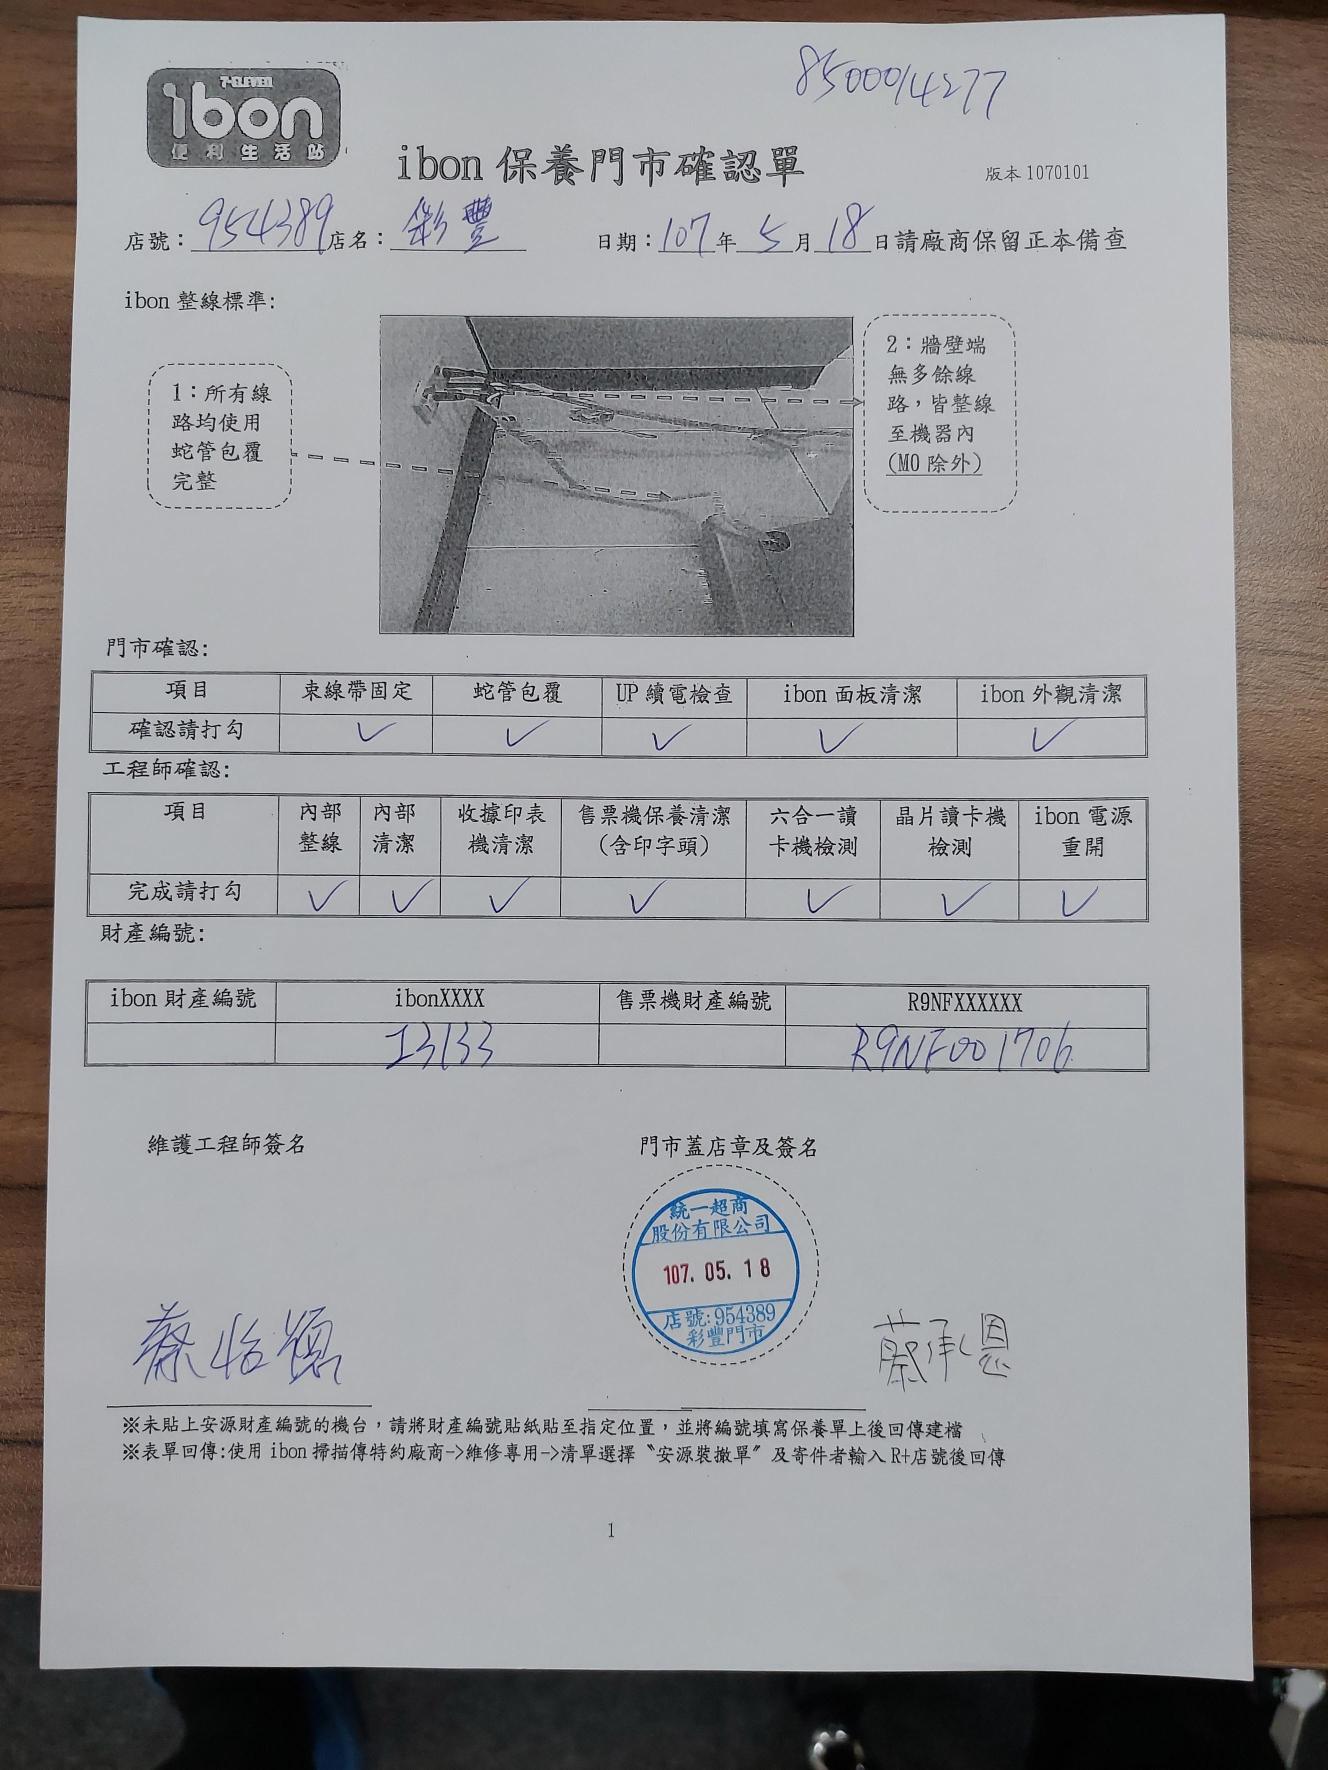 850014277
7-ELEVEN
ibon
便利生活站
ibon 保養門市確認單
版本 1070101
店號：954389 店名：彩豐 日期：107年5月18日請廠商保留正本備查
ibon 整線標準:
1：所有線
路均使用
蛇管包覆
完整
2：牆壁端
無多餘線
路，皆整線
至機器內
(MO 除外)
門市確認:
項目 束線帶固定 蛇管包覆 UP 續電檢查 ibon 面板清潔 ibon 外觀清潔
確認請打勾 ✓ ✓ ✓ ✓ ✓
工程師確認:
項目 內部 內部 收據印表 售票機保養清潔 六合一讀 晶片讀卡機 ibon 電源
整線 清潔 機清潔 (含印字頭) 卡機檢測 檢測 重開
完成請打勾 ✓ ✓ ✓ ✓ ✓ ✓ ✓
財產編號:
ibon 財產編號 ibonXXXX 售票機財產編號 R9NFXXXXXX
13133 R9NF001706
維護工程師簽名 門市蓋店章及簽名
統一超商
股份有限公司
107. 05. 18
店號:954389
彩豐門市
蔡怡穎 蔡承恩
※未貼上安源財產編號的機台，請將財產編號貼紙貼至指定位置，並將編號填寫保養單上後回傳建檔
※表單回傳:使用 ibon 掃描傳特約廠商->維修專用->清單選擇〝安源裝撤單〞及寄件者輸入 R+店號後回傳
1